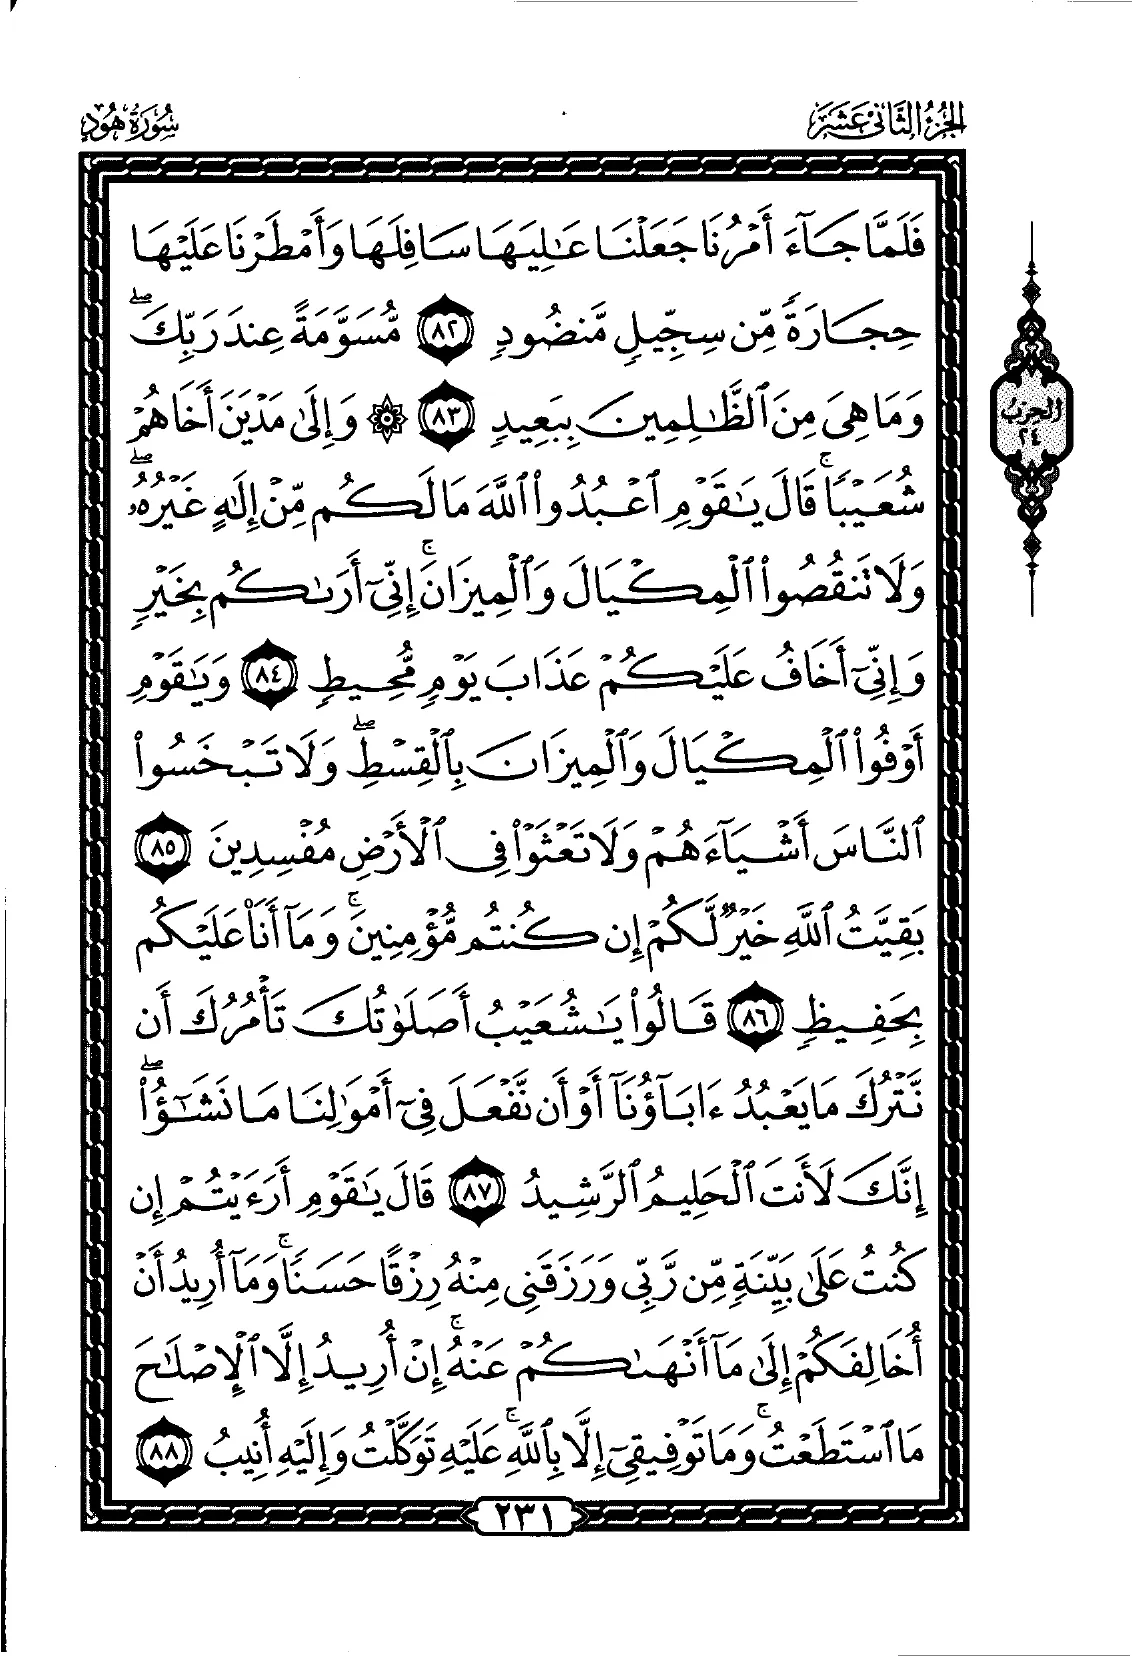 الجزء الثاني عشر
سورة هود
فَلَمَّا جَآءَ أَمۡرُنَا جَعَلۡنَا عَٰلِيَهَا سَافِلَهَا وَأَمۡطَرۡنَا عَلَيۡهَا
حِجَارَةٗ مِّن سِجِّيلٖ مَّنضُودٖ ٨٢ مُّسَوَّمَةً عِندَ رَبِّكَۖ
وَمَا هِيَ مِنَ ٱلظَّٰلِمِينَ بِبَعِيدٖ ٨٣ ۞ وَإِلَىٰ مَدۡيَنَ أَخَاهُمۡ
شُعَيۡبٗاۚ قَالَ يَٰقَوۡمِ ٱعۡبُدُواْ ٱللَّهَ مَا لَكُم مِّنۡ إِلَٰهٍ غَيۡرُهُۥۖ
وَلَا تَنقُصُواْ ٱلۡمِكۡيَالَ وَٱلۡمِيزَانَۚ إِنِّيٓ أَرَىٰكُم بِخَيۡرٖ
وَإِنِّيٓ أَخَافُ عَلَيۡكُمۡ عَذَابَ يَوۡمٖ مُّحِيطٖ ٨٤ وَيَٰقَوۡمِ
أَوۡفُواْ ٱلۡمِكۡيَالَ وَٱلۡمِيزَانَ بِٱلۡقِسۡطِۖ وَلَا تَبۡخَسُواْ
ٱلنَّاسَ أَشۡيَآءَهُمۡ وَلَا تَعۡثَوۡاْ فِي ٱلۡأَرۡضِ مُفۡسِدِينَ ٨٥
بَقِيَّتُ ٱللَّهِ خَيۡرٞ لَّكُمۡ إِن كُنتُم مُّؤۡمِنِينَۚ وَمَآ أَنَا۠ عَلَيۡكُم
بِحَفِيظٖ ٨٦ قَالُواْ يَٰشُعَيۡبُ أَصَلَوٰتُكَ تَأۡمُرُكَ أَن
نَّتۡرُكَ مَا يَعۡبُدُ ءَابَآؤُنَآ أَوۡ أَن نَّفۡعَلَ فِيٓ أَمۡوَٰلِنَا مَا نَشَٰٓؤُاْۖ
إِنَّكَ لَأَنتَ ٱلۡحَلِيمُ ٱلرَّشِيدُ ٨٧ قَالَ يَٰقَوۡمِ أَرَءَيۡتُمۡ إِن
كُنتُ عَلَىٰ بَيِّنَةٖ مِّن رَّبِّي وَرَزَقَنِي مِنۡهُ رِزۡقًا حَسَنٗاۚ وَمَآ أُرِيدُ أَنۡ
أُخَالِفَكُمۡ إِلَىٰ مَآ أَنۡهَىٰكُمۡ عَنۡهُۚ إِنۡ أُرِيدُ إِلَّا ٱلۡإِصۡلَٰحَ
مَا ٱسۡتَطَعۡتُۚ وَمَا تَوۡفِيقِيٓ إِلَّا بِٱللَّهِۚ عَلَيۡهِ تَوَكَّلۡتُ وَإِلَيۡهِ أُنِيبُ ٨٨
الحزب
٢٤
٢٣١